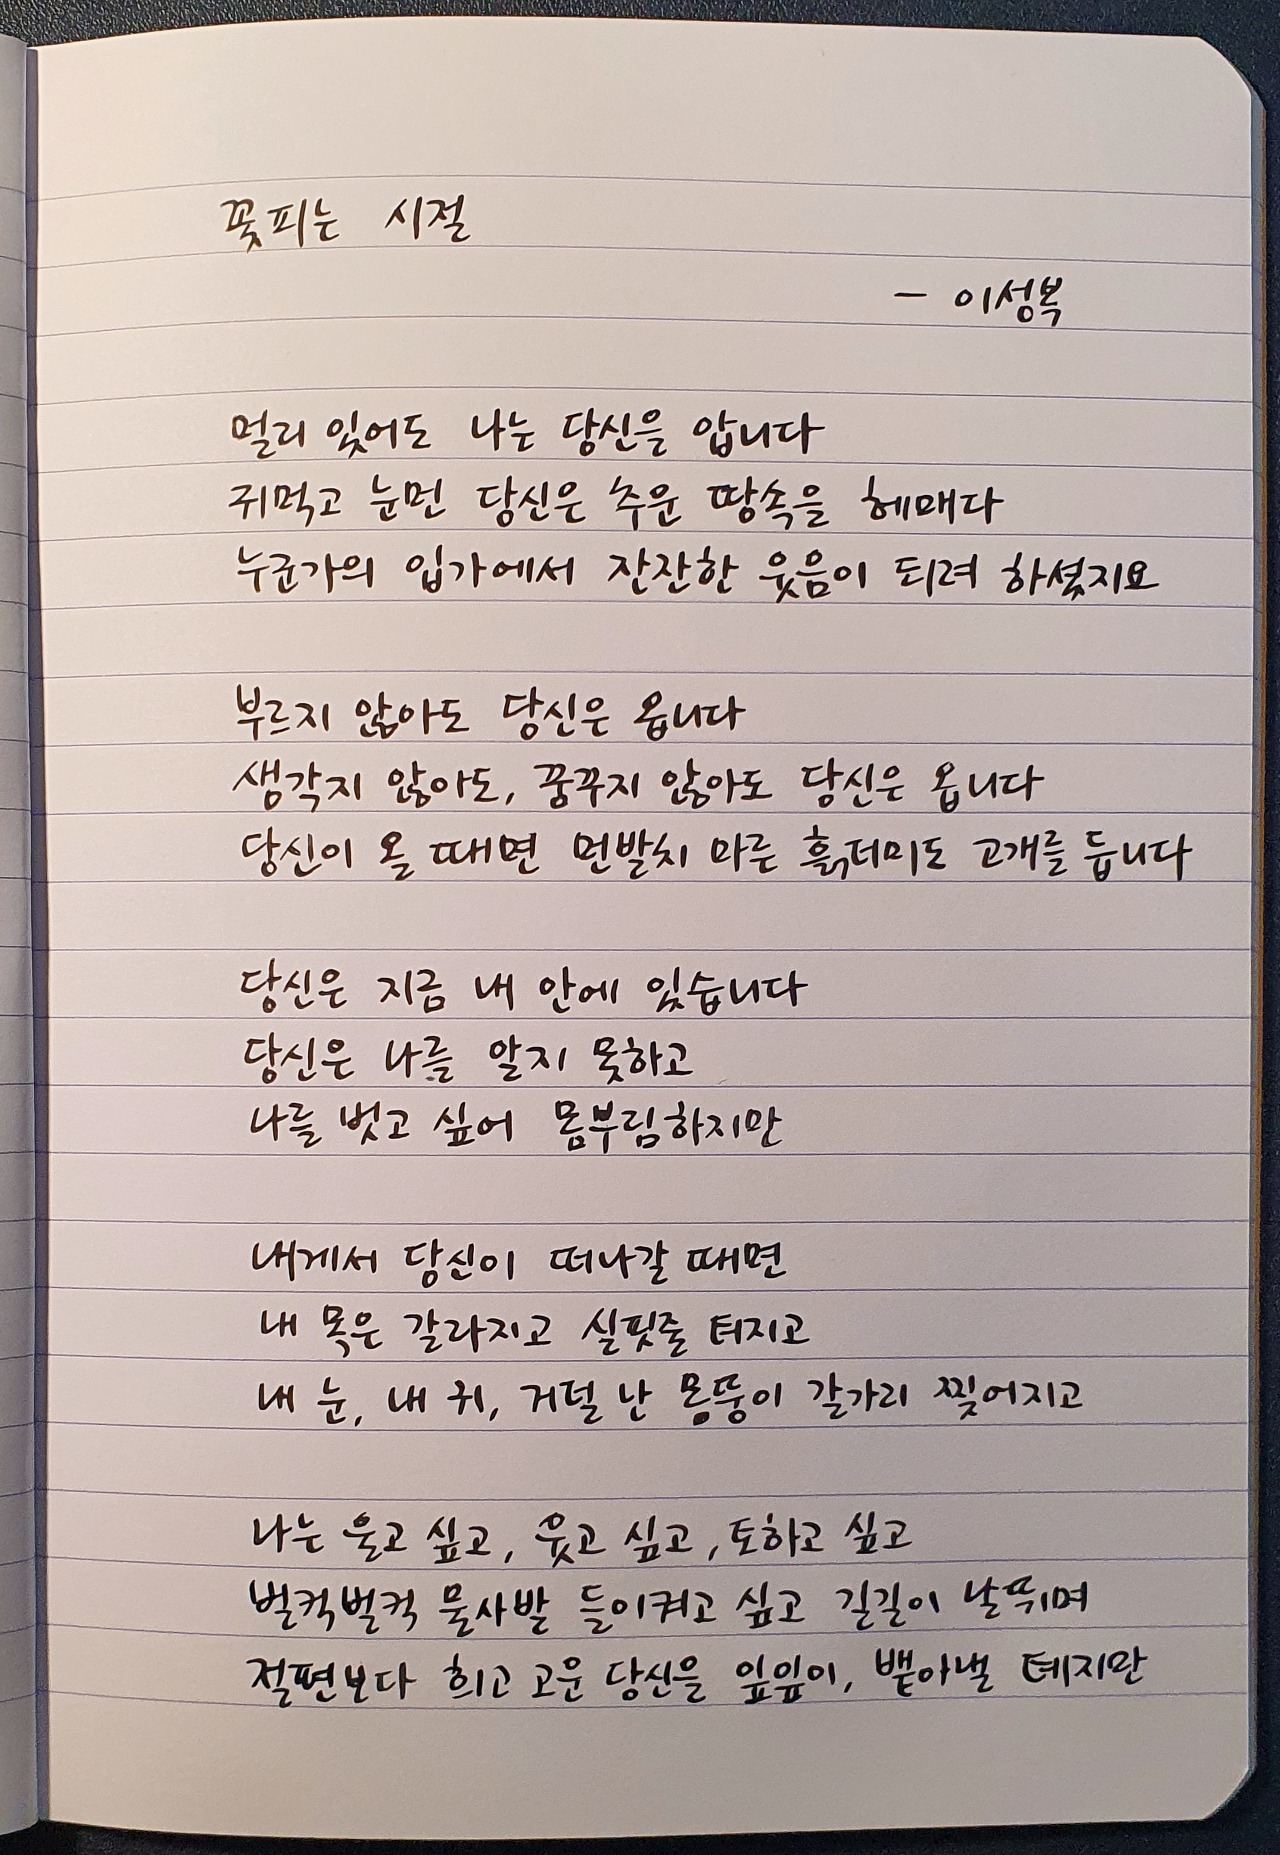 꽃피는 시절
- 이성복
멀리 있어도 나는 당신을 압니다
귀먹고 눈먼 당신은 추운 땅속을 헤매다
누군가의 입가에서 잔잔한 웃음이 되려 하셨지요
부르지 않아도 당신은 옵니다
생각지 않아도, 꿈꾸지 않아도 당신은 옵니다
당신이 올 때면 먼발치 마른 흙더미도 고개를 듭니다
당신은 지금 내 안에 있습니다
당신은 나를 알지 못하고
나를 벗고 싶어 몸부림하지만
내게서 당신이 떠나갈 때면
내 목은 갈라지고 실핏줄 터지고
내 눈, 내 귀, 거덜 난 몸뚱이 갈가리 찢어지고
나는 울고 싶고, 웃고 싶고, 토하고 싶고
벌컥벌컥 물사발 들이켜고 싶고 길길이 날뛰며
절편보다 희고 고운 당신을 잎잎이, 뱉아낼 테지만